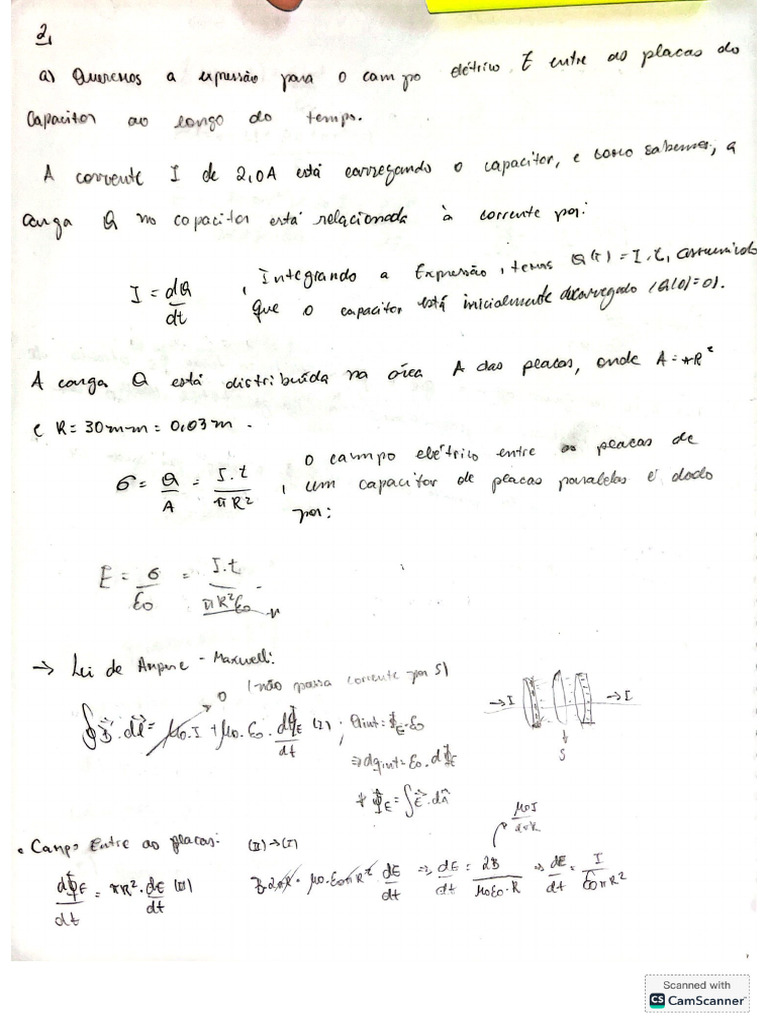 2,
a) Queremos a expressão para o campo elétrico E entre as placas do
Capacitor ao longo do tempo.
A corrente I de 2,0A está carregando o capacitor, e como sabemos, a
carga Q no capacitor está relacionada à corrente por:
I = dQ/dt , Integrando a Expressão, temos Q(t) = I.t, assumindo
que o capacitor está inicialmente descarregado (Q(0)=0).
A carga Q está distribuída na área A das placas, onde A = πR²
e R = 30mm = 0,03m.
σ = Q/A = I.t/πR² , o campo elétrico entre as placas de
um capacitor de placas paralelas é dado
por:
E = σ/ε₀ = I.t/πR²ε₀
→ Lei de Ampere - Maxwell:
0 (não passa corrente por S)
→I →I
∮B⃗.dl⃗ = μ₀.I + μ₀.ε₀.dΦE/dt (I) ; Qint = ΦE.ε₀
S
⇒ dqint = ε₀.dΦE
* ΦE = ∫E⃗.dA⃗
μ₀I/2πR
• Campo Entre as placas: (II)→(I)
dΦE/dt = πR².dE/dt (II) B.2πR = μ₀.ε₀πR² dE/dt ⇒ dE/dt = 2B/μ₀ε₀.R ⇒ dE/dt = I/ε₀πR²
Scanned with
CS CamScanner